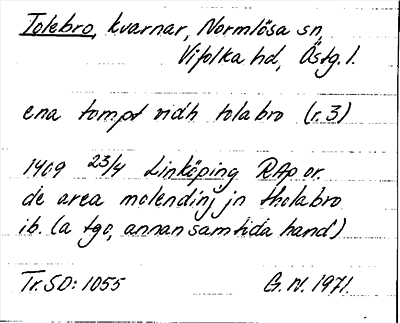 Tolebro, kvarnar, Normlösa sn,
Vifolka hd, Östg. l.
ena tompt vidh tolabro (r. 3)
1409 23/4 Linköping RAp or.
de area molendinj jn tholabro
ib. (a tgo, annan samtida hand)
Tr. SD: 1055 G. W. 1971.